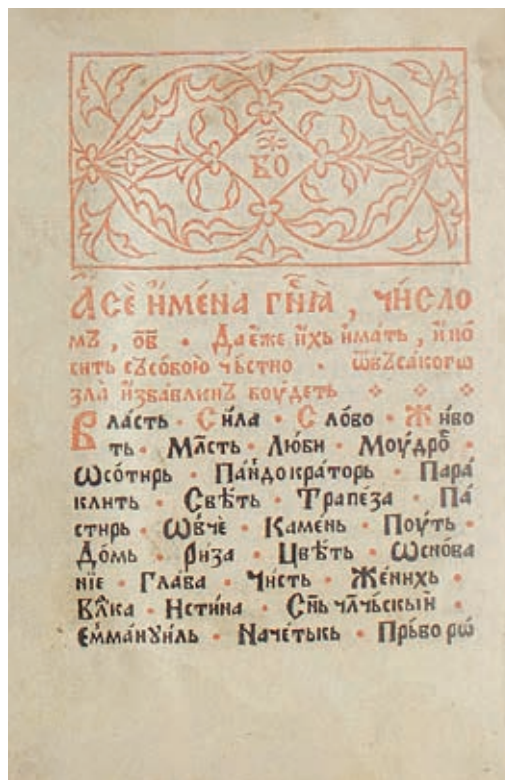 КО
А сѐ и҆ме́на гн҃ꙗ, чи́сло
мъ, ѻ҃в • Да є҆же и҆хь и҆мать, и҆ но
сить съсобо́ю че́стно • ѿ въса́кого
зла̀ и҆зба́влѥнъ боу́деть
Вла́сть • Си́ла • Сло́во • Живо
ть • Мл҃сть • Лю́би • Моу́дро
Ѡсо́тирь • Па́ндокра́торь • Пара́
клить • Свѣ́ть • Трапе́за • Па́
стирь • Ѡ҆вче • Ка́мень • Поу́ть •
До́мь • Ри́за • Цвѣ́ть • Ѡ҆сно́ва
нїе • Гла́ва • Чи́сть • Же́нихь •
Вл҃ка • И҆сти́на • Сн҃ь чл҃чьскы́и •
Є҆мма́нуи́ль • Наче́тькь • Прь́во рѡ́